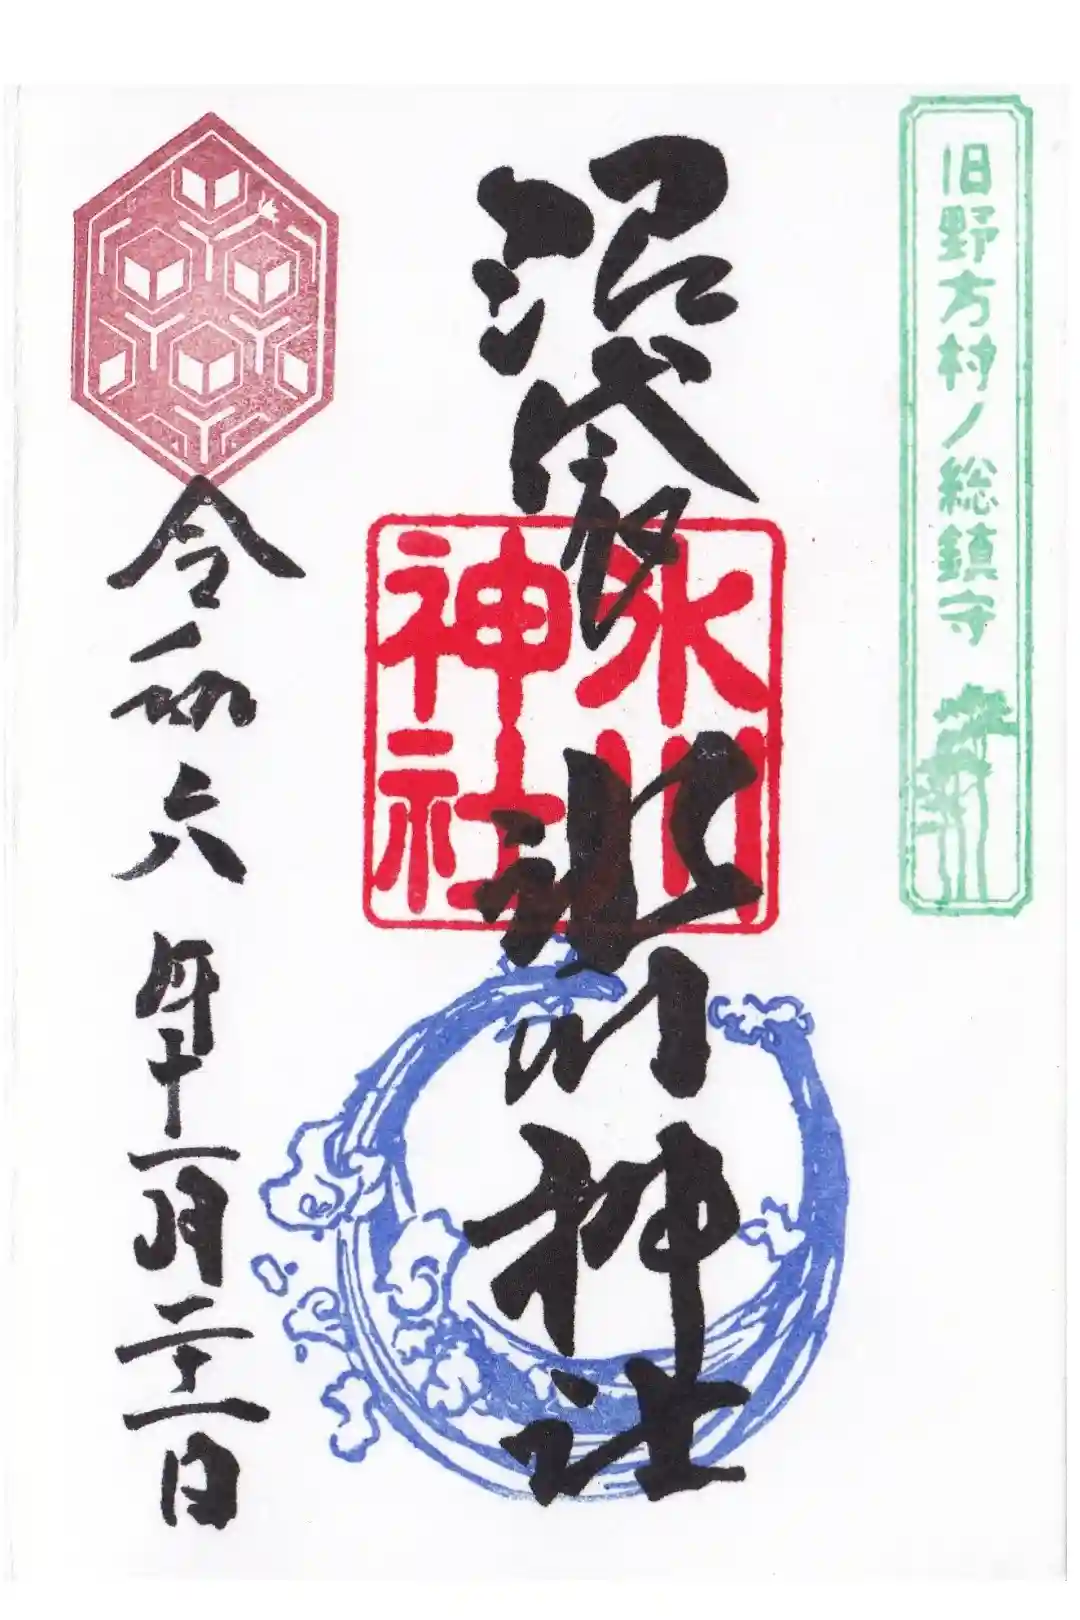 旧野方村ノ総鎮守
沼袋氷川神社
氷川
神社
令和六年十一月二十一日